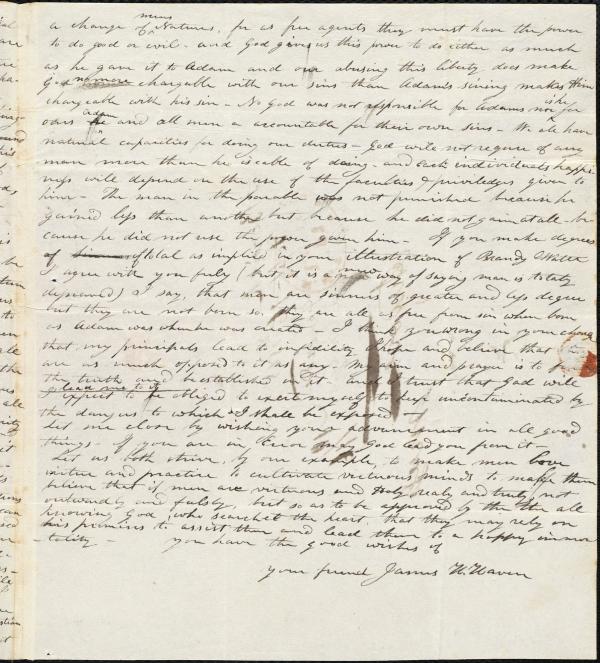 mens
a change of Natures, for as free agents they must have the power
to do good or evil - and God gives us this power to do either as much
as he gave it to Adam and our abusing this liberty does make
God no more chargable with our sins than Adam's sining makes Him
chargeable with his sin - No God was not responsible for Adams nor is he for
ours adam and all men a accountable for their own sins - We all have
natural capacities for doing our duties - God will not require of any
man more than he is cable of doing - and each individuals happi
ness will depend on the use of the faculties & priviledges given to
him - The man in the parable was not punished because he
gained less than another but because he did not gain at all - be
cause he did not use the power given him - If you make degrees
of total as implied in your illustration of Brandy Water
I agree with you fully (but it is a new way of saying man is totaly
depraved) I say, that men are sinners of greater and less degree
but they are not born so, they are all as free from sin when born
as Adam was when he was created - I think you wrong in your
that my principals lead to infidelity I hope and believe that
are as much opposd to it as any - My aim and prayer is to
the truth and be established in it - and I trust that God will
I expect to be obliged to exert myself to keep uncontaminated by
the dangers to which I shall be exposed -
Let me close by wishing your advancement in all good
things - If you are in Error may God lead you from it -
Let us both strive, by our example, to make men love
virtue and practice to cultivate virtuous minds to make them
believe that if men are virtuous and Holy realy and truly not
outwardly and falsly, but so as to be approved by the the all
knowing God who searchet the heart, that they may rely on
his promises to assist them and lead them to a happy immor
-tality - you have the good wishes of
your friend James H. Haven